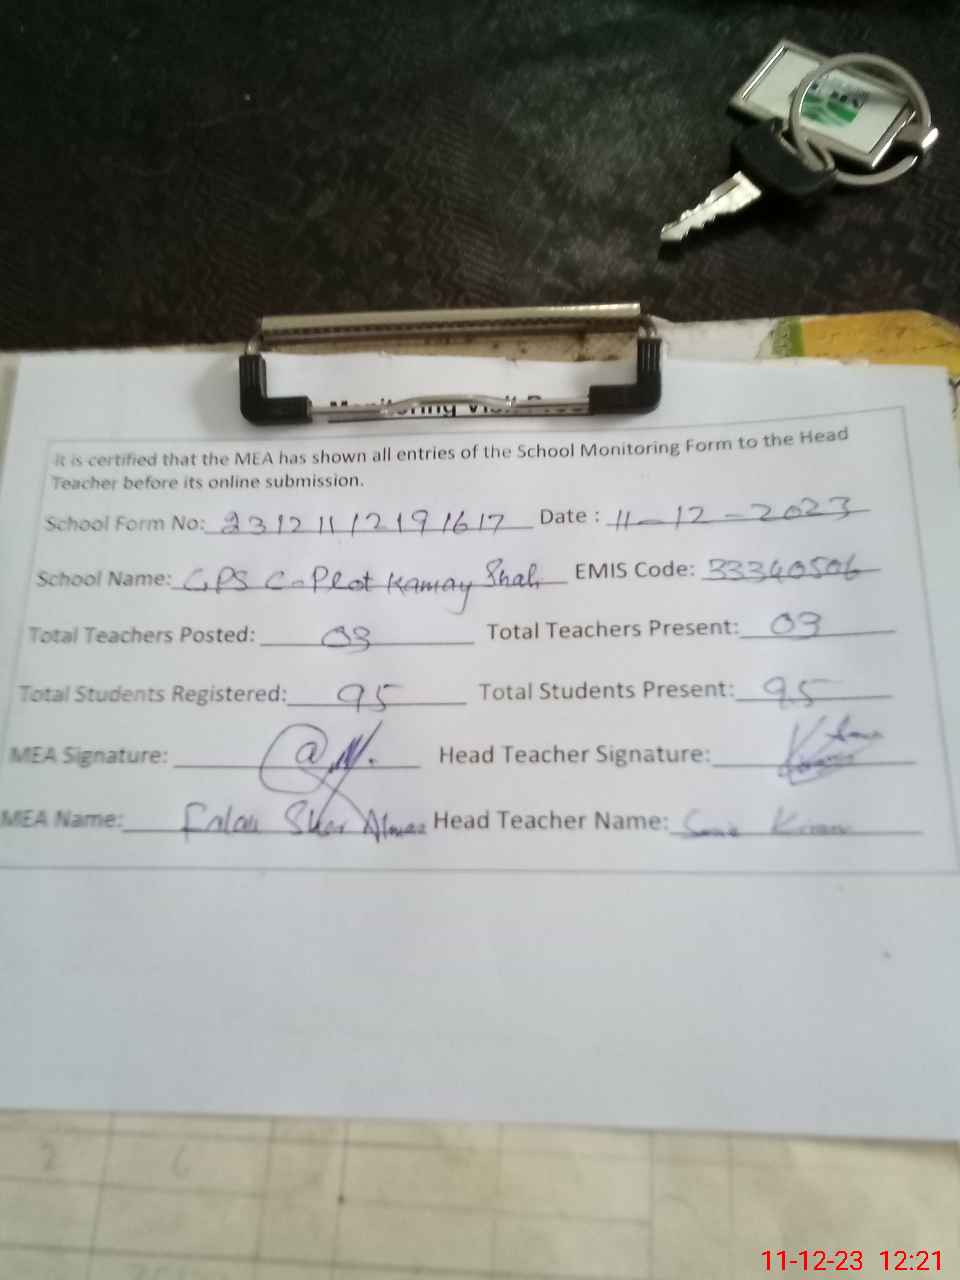 Monitoring Visit Proof
It is certified that the MEA has shown all entries of the School Monitoring Form to the Head
Teacher before its online submission.
School Form No: 23121112191617 Date : 11-12-2023
School Name: GPS C-Plot Kamay Shah EMIS Code: 33340506
Total Teachers Posted: 03 Total Teachers Present: 03
Total Students Registered: 95 Total Students Present: 95
MEA Signature: Head Teacher Signature:
MEA Name: Sher Head Teacher Name:
2 6
11-12-23 12:21